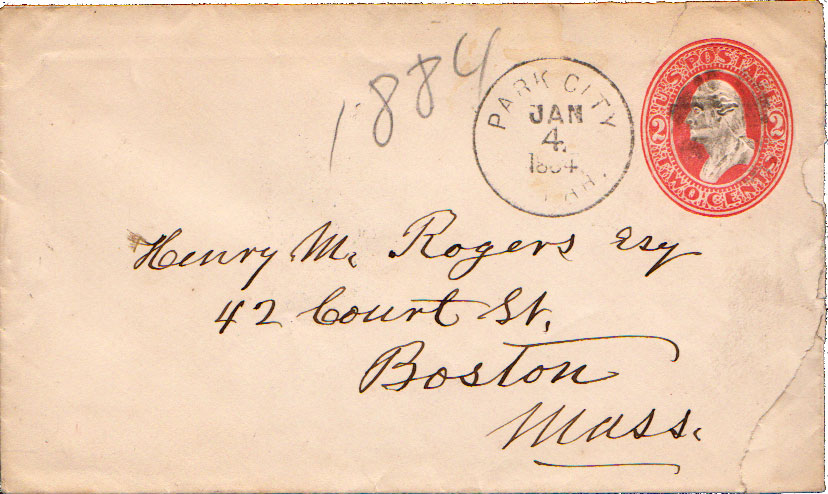 1884
PARK CITY
JAN
4.
1884
U.S. POSTAGE
2 2
TWO CENTS
Henry M. Rogers Esq
42 Court St.
Boston
Mass.